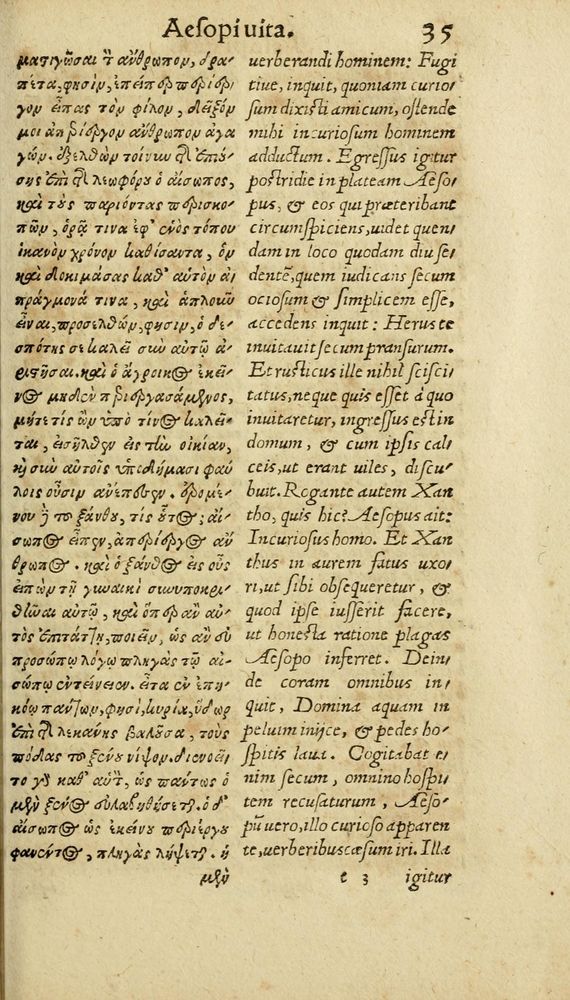 Aesopi uita. 35
ματιγῶσαι τ ἄνθρωπον, δρα-
πέτα, φησὶν, ἐπείπερ περίερ-
γον εἶπας τὸν φίλον, δεῖξόν
μοι ἀπερίεργον ἄνθρωπον ἀγα
γών. ἐξελθὼν τοίνυν τῇ ἐπιού-
σης ἐπὶ τῆ λεωφόρου ὁ αἴσωπος,
καὶ τοὺς παριόντας περισκο-
πῶν, ὁρᾷ τινα ἐφ' ἑνὸς τόπου
ἱκανὸν χρόνον καθίσαντα, ὃν
καὶ δοκιμάσας καθ' αὑτὸν ἀ-
πράγμονά τινα, καὶ ἁπλοῦν
εἶναι, προσελθών, φησιν, ὁ δε-
σπότης σε καλεῖ σὺν αὐτῷ ἀ-
ριστῆσαι. καὶ ὁ ἄγροικος ἐκεῖ-
νος μηδὲν περιεργασάμενος,
μήτε τίς ὢν ὑπὸ τίνος καλεῖ-
ται, εἰσῆλθεν εἰς τὴν οἰκίαν,
καὶ σὺν αὐτοῖς ὑποδήμασι φαύ
λοις οὖσιν ἀνέπεσεν. ἐρομέ-
νου ἢ τοῦ ξάνθου, τίς οὗτος; αἴ-
σωπος εἶπεν, ἀπερίεργος ἄν
θρωπος. καὶ ὁ ξάνθος εἰς οὖς
εἰπὼν τῇ γυναικὶ συνυποκρι-
θῆναι αὐτῷ, καὶ ὅπερ ἂν αὐ-
τὸς ἐπιτάττῃ, ποιεῖν, ὡς ἂν εὐ
προσώπῳ λόγῳ πληγὰς τῷ αἰ-
σώπῳ ἐντείνειεν. εἶτα ἐν ἐπη-
κόῳ πάντων, φησὶ, κυρία, ὕδωρ
ἐπὶ τῆ λεκάνης βαλοῦσα, τοὺς
πόδας τοῦ ξένου νίψον. διενοεῖ-
το γὰρ καθ' αὑτ, ὡς πάντως ὁ
μὲν ξένος εὐλαβηθήσεται. ὁ δ'
αἴσωπος ὡς ἐκείνου περιέργου
φανέντος, πληγὰς λήψεται. ἡ
μὲν
uerberandi hominem: Fugi
tiue, inquit, quoniam curio-
sum dixisti amicum, ostende
mihi incuriosum hominem
adductum. Egressus igitur
postridie in plateam Aeso-
pus, & eos qui præteribant
circumspiciens, uidet quen-
dam in loco quodam diu se-
dentē, quem iudicans secum
ociosum & simplicem esse,
accedens inquit: Herus te
inuitauit secum pransurum.
Et rusticus ille nihil scisci-
tatus, neque quis esset à quo
inuitaretur, ingressus est in
domum, & cum ipsis cal-
ceis, ut erant uiles, discu-
buit. Rogante autem Xan
tho, quis hic? Aesopus ait:
Incuriosus homo. Et Xan
thus in aurem fatus uxo-
ri, ut sibi obsequeretur, &
quod ipse iusserit facere,
ut honesta ratione plagas
Aesopo inferret. Dein-
de coram omnibus in-
quit, Domina aquam in
peluim inijce, & pedes ho-
spitis laua. Cogitabat e-
nim secum, omnino hospi-
tem recusaturum, Aeso-
pū uero, illo curioso apparen
te, uerberibus cæsum iri. Illa
e 3 igitur